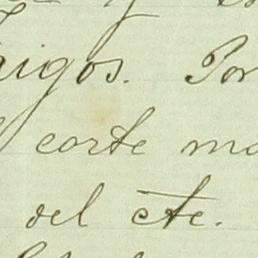 aigos. Por
corte ma
del cte.